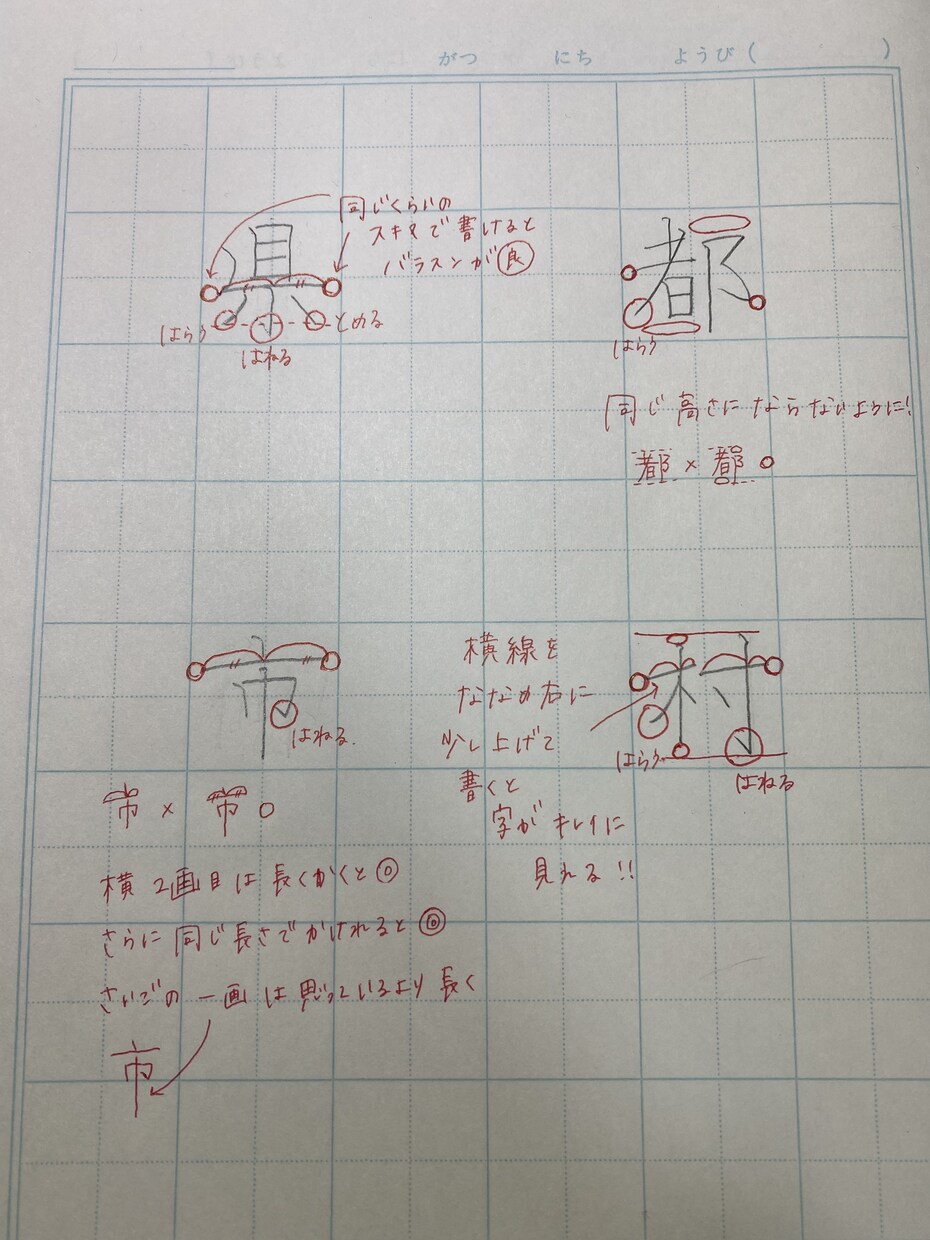 がつ にち ようび ( )
同じくらいの
スキマで書けると
バラスンが良
県
はらう
はねる
とめる
都
はらう
同じ高さにならないように!
都 × 都 ○
市
はねる
市 × 市 ○
横2画目は長くかくと◎
さらに同じ長さでかけれると◎
さいごの一画は思っているより長く
市
横線を
ななめ右に
少し上げて
書くと
字がキレイに
見れる!!
村
はらう
はねる